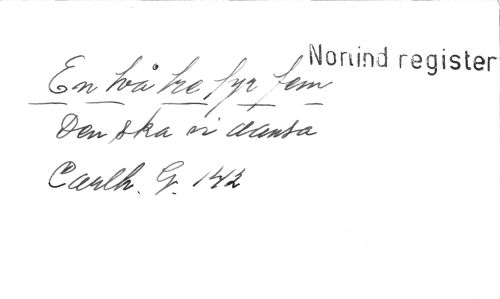 Norlind register
En två tre fyr fem
Den ska vi dansa
Carlh. G. 142